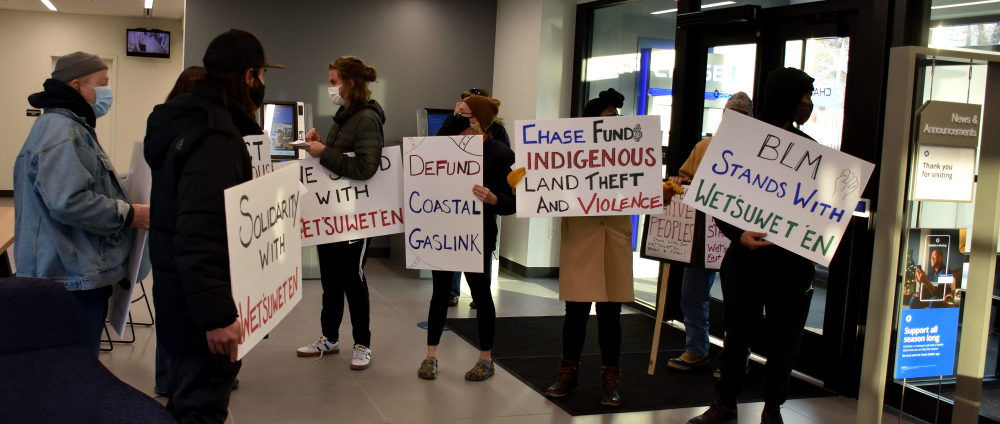 SOLIDARITY
WITH
WET'SUWET'EN
STAND
WITH
WET'SUWET'EN
DEFUND
COASTAL
GASLINK
CHASE FUNDS
INDIGENOUS
LAND THEFT
AND VIOLENCE
PEOPLES
BLM
STANDS WITH
WET'SUWET'EN
News &
Announcements
Thank you
for visiting
Support all
season long